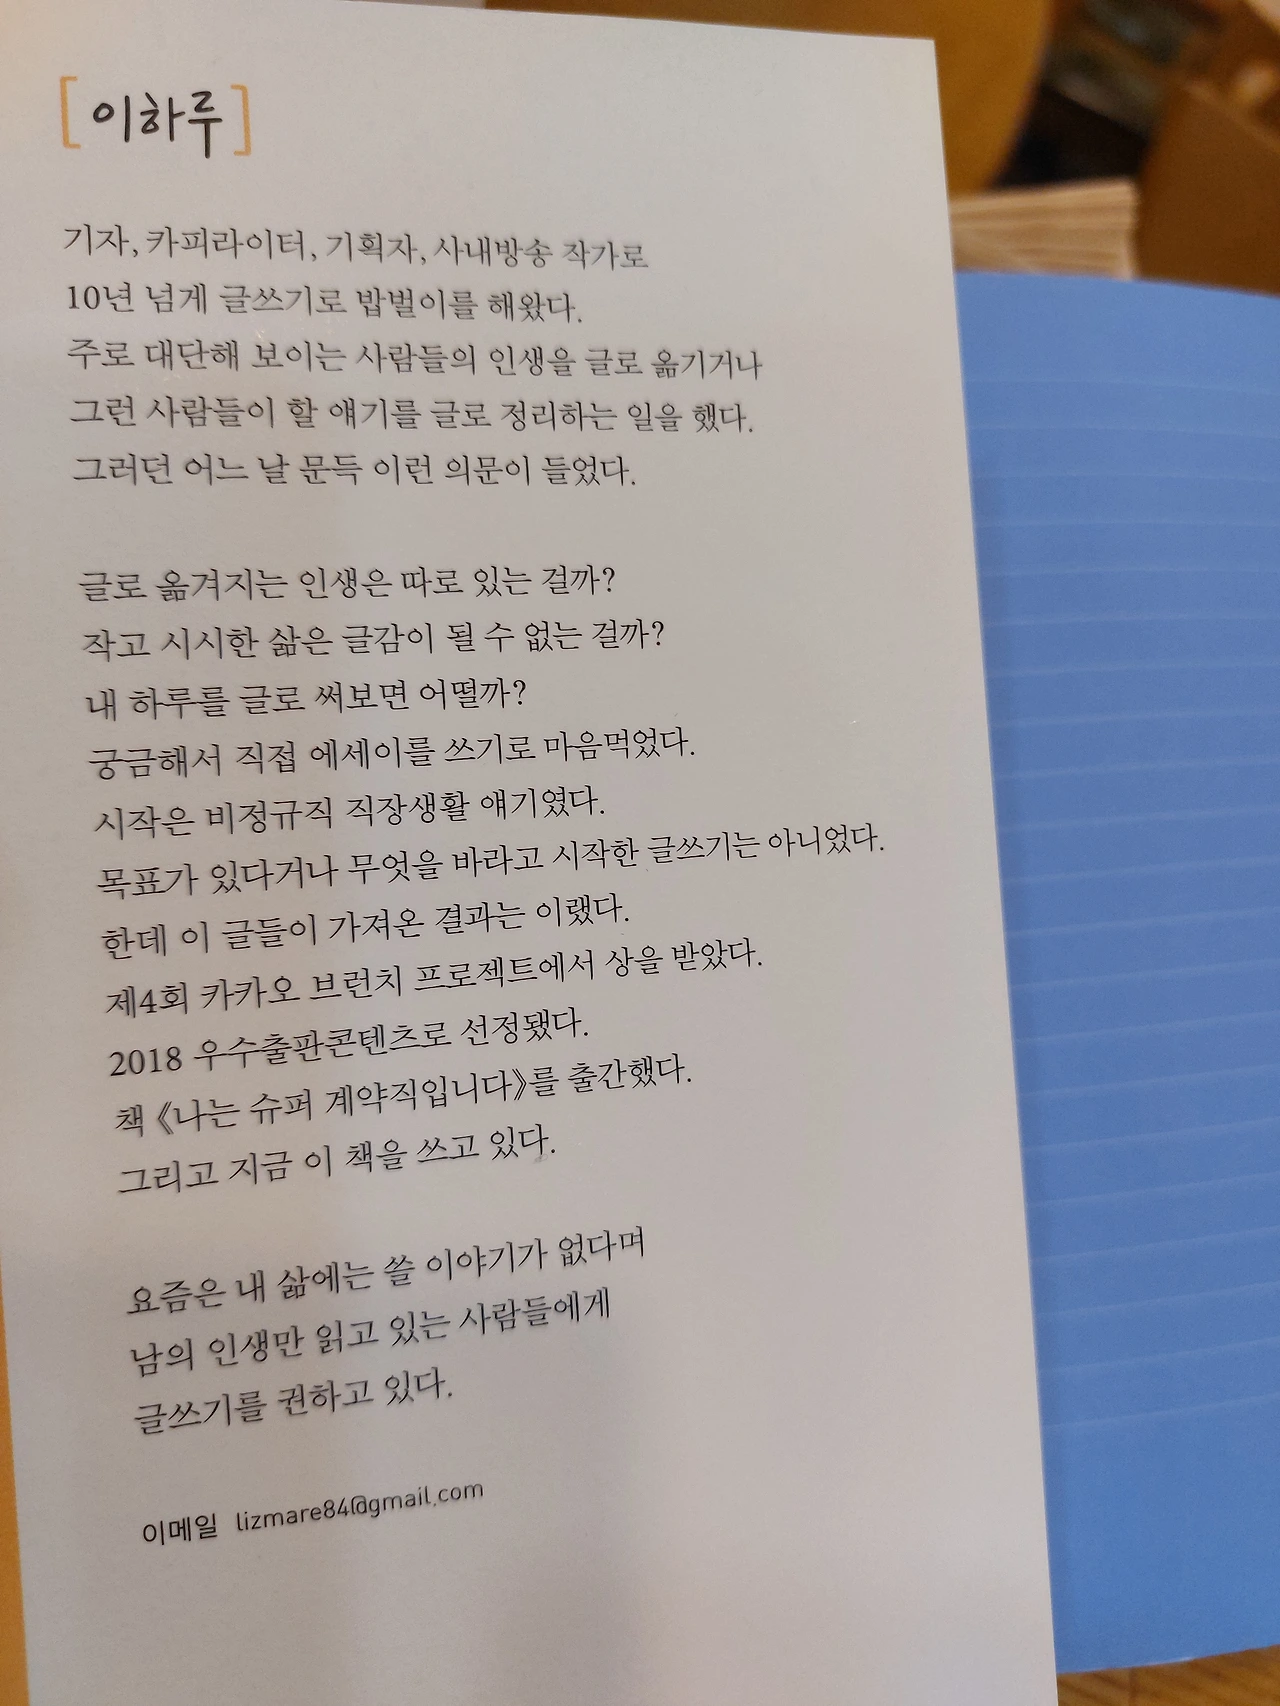 [이하루]
기자, 카피라이터, 기획자, 사내방송 작가로
10년 넘게 글쓰기로 밥벌이를 해왔다.
주로 대단해 보이는 사람들의 인생을 글로 옮기거나
그런 사람들이 할 얘기를 글로 정리하는 일을 했다.
그러던 어느 날 문득 이런 의문이 들었다.
글로 옮겨지는 인생은 따로 있는 걸까?
작고 시시한 삶은 글감이 될 수 없는 걸까?
내 하루를 글로 써보면 어떨까?
궁금해서 직접 에세이를 쓰기로 마음먹었다.
시작은 비정규직 직장생활 얘기였다.
목표가 있다거나 무엇을 바라고 시작한 글쓰기는 아니었다.
한데 이 글들이 가져온 결과는 이랬다.
제4회 카카오 브런치 프로젝트에서 상을 받았다.
2018 우수출판콘텐츠로 선정됐다.
책 《나는 슈퍼 계약직입니다》를 출간했다.
그리고 지금 이 책을 쓰고 있다.
요즘은 내 삶에는 쓸 이야기가 없다며
남의 인생만 읽고 있는 사람들에게
글쓰기를 권하고 있다.
이메일 lizmare84@gmail.com